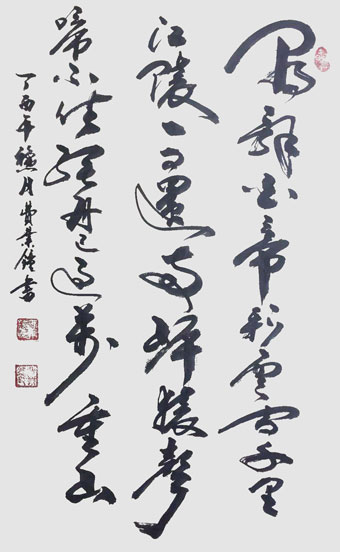 朝辞白帝彩云间千里
江陵一日还两岸猿声
啼不住轻舟已过万重山
丁酉年 月费业 书